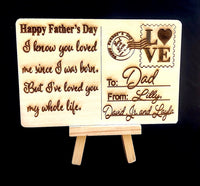 Happy Father's Day
I know you loved
me since I was born.
But I've loved you
my whole life.
LOVE
To: Dad
From: Lilly,
David Jr. and Layla